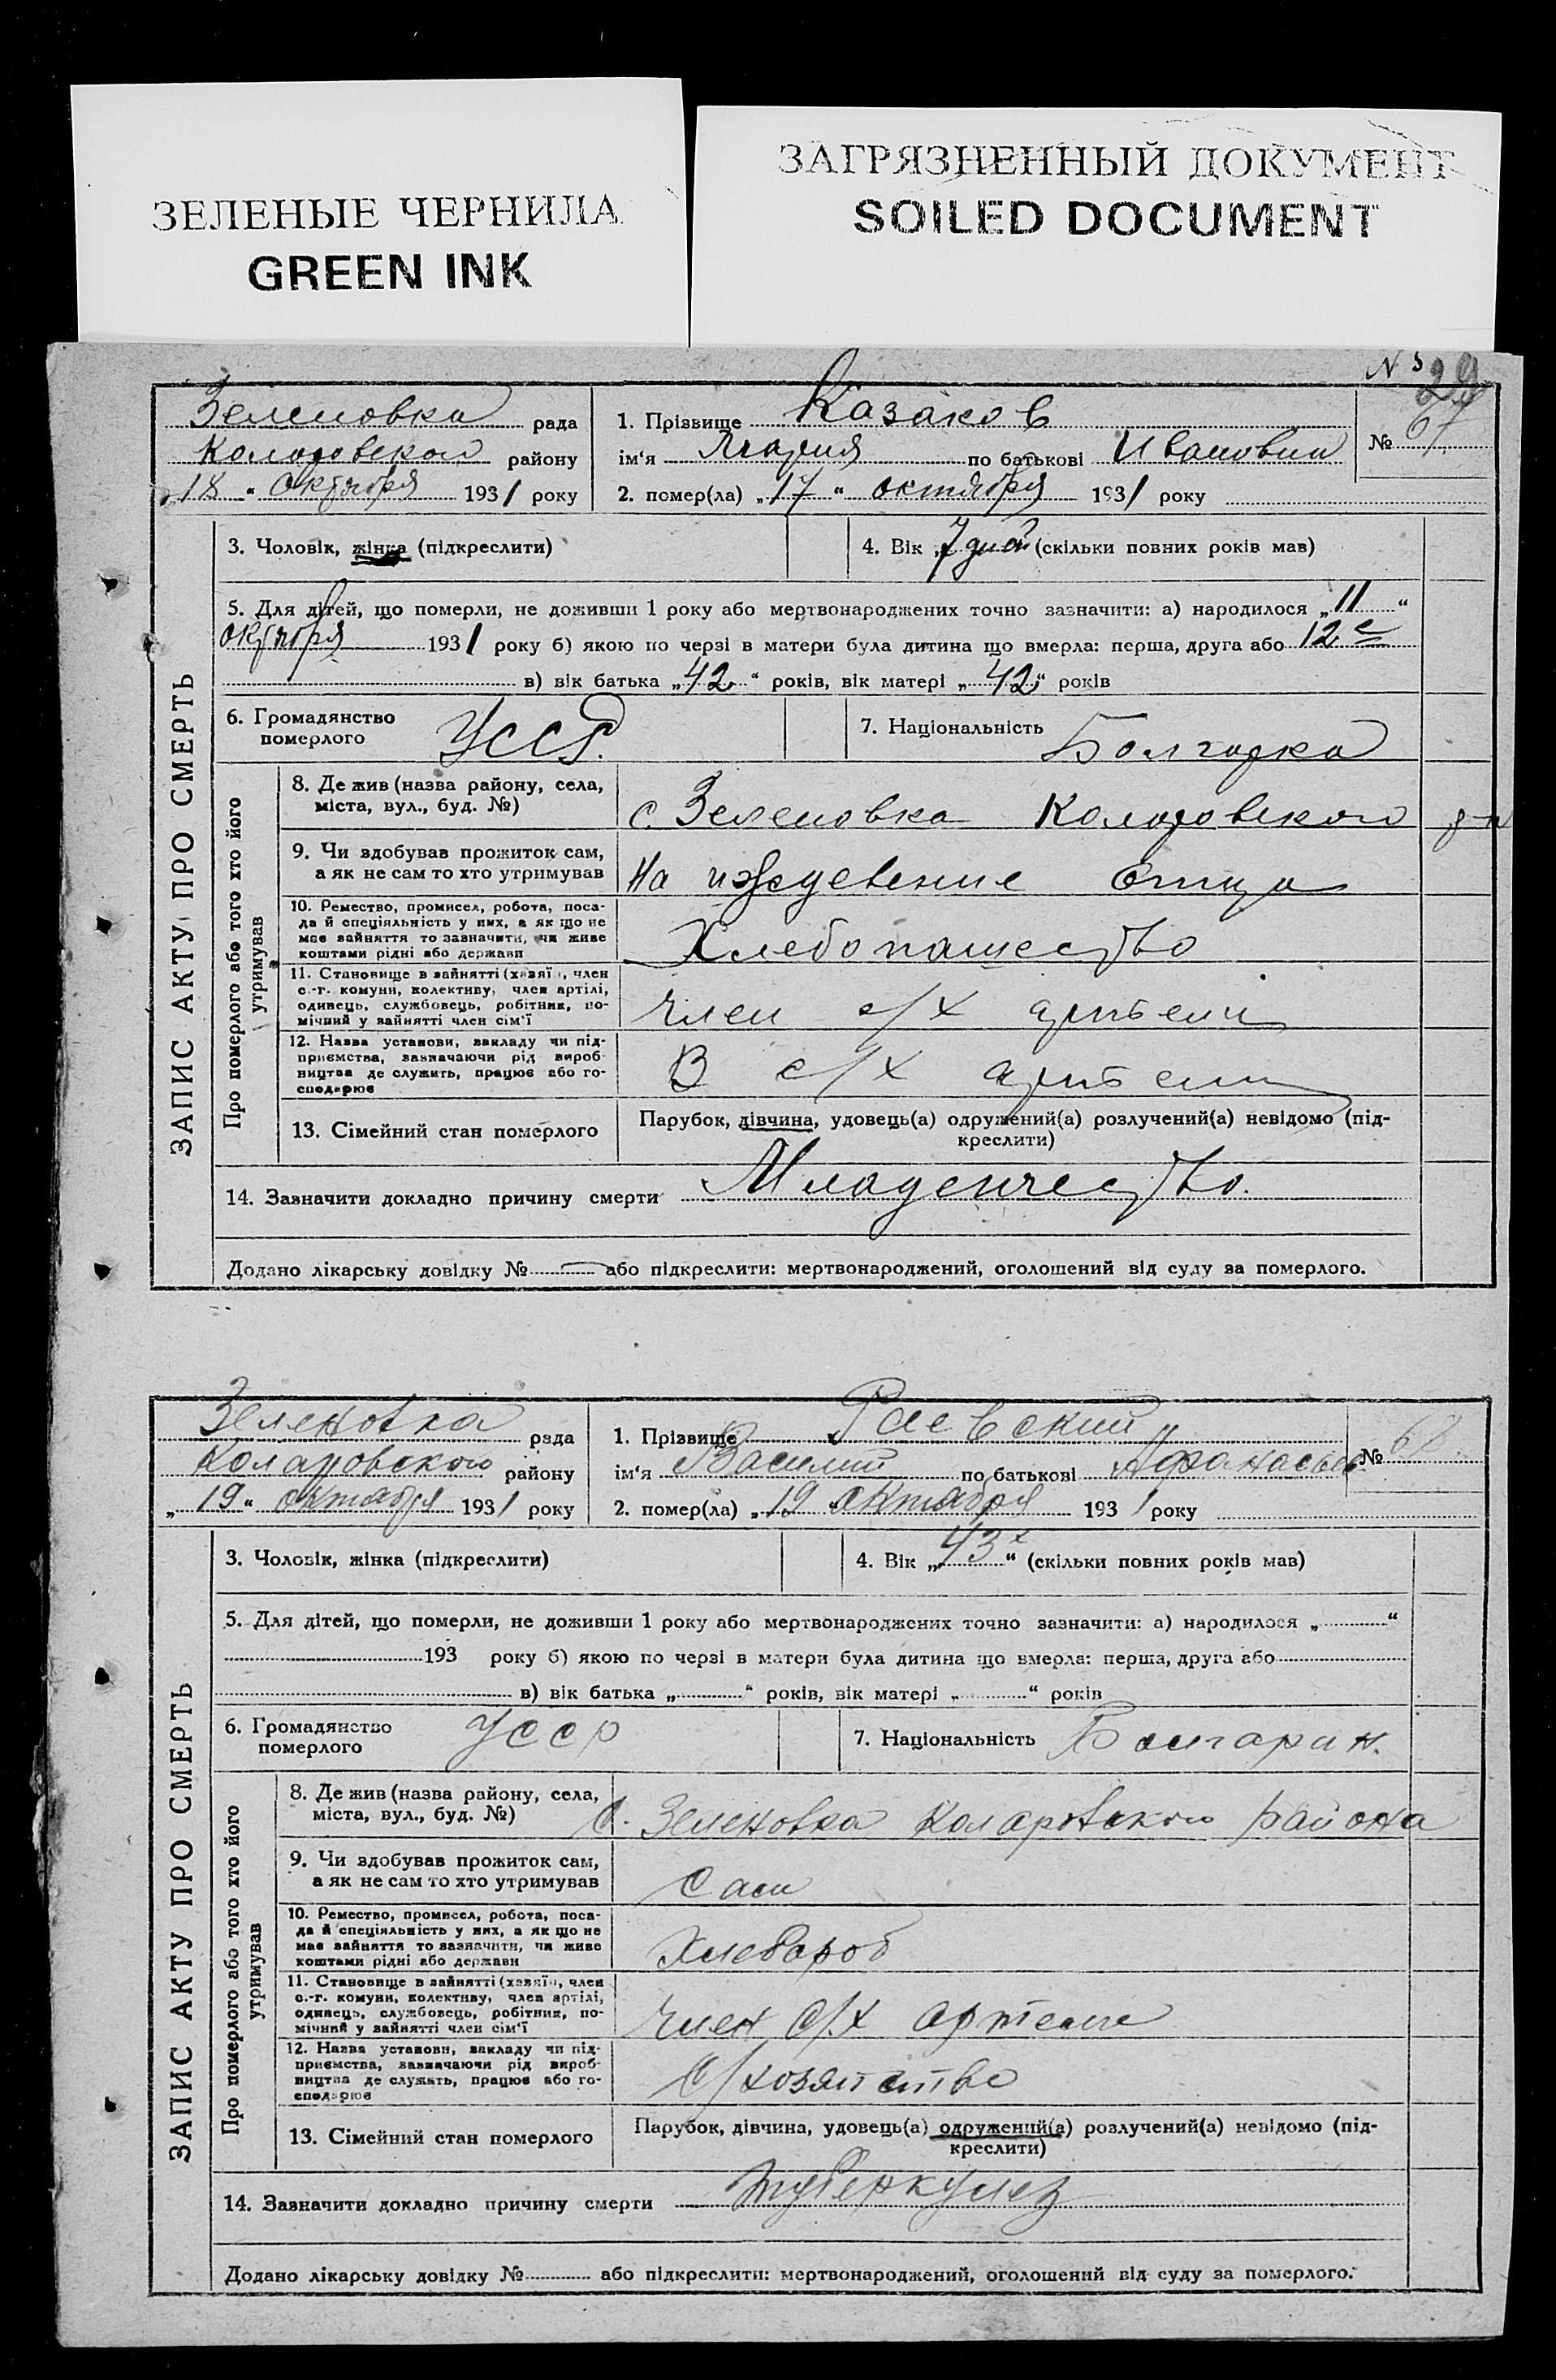 ЗЕЛЕНЫЕ ЧЕРНИЛА
GREEN INK
ЗАГРЯЗНЕННЫЙ ДОКУМЕНТ
SOILED DOCUMENT
29
Зеленовка рада
Коларовского району
„18 “ октября 1931 року
1. Прізвище Казаков
ім‘я Мария по батькові Ивановна
2. помер(ла) „17“ октября 1931 року
№ 67
ЗАПИС АКТУ ПРО СМЕРТЬ
3. Чоловік, жінка (підкреслити)
4. Вік „7 дней (скільки повних років мав)
5. Для дітей, що померли, не доживши 1 року або мертвонароджених точно зазначити: а) народилося „11“
октября 1931 року б) якою по черзі в матери була дитина що вмерла: перша, друга або 12е
в) вік батька „42“ років, вік матері „42“ років
6. Громадянство
померлого
УССР.
7. Національність Болгарка
Про померлого або того хто його
утримував
8. Де жив (назва району, села,
міста, вул., буд. №)
с. Зеленовка Коларовского р-н
9. Чи здобував прожиток сам,
а як не сам то хто утримував
На иждевение отца
10. Ремество, промисел, робота, поса-
да й спеціяльність у них, а як що не
має зайняття то зазначити, чи живе
коштами рідні або держави
Хлебопашество
11. Становище в зайнятті (хазяїн, член
с.-г. комуни, колективу, член артілі,
одинець, службовець, робітник, по-
мічний у зайнятті член сім‘ї
член с/х артели
12. Назва установи, закладу чи під-
приємства, зазначаючи рід вироб-
ництва де служить, працює або го-
сподарює
В с/х артели
13. Сімейний стан померлого
Парубок, дівчина, удовець(а) одружений(а) розлучений(а) невідомо (під-
креслити)
14. Зазначити докладно причину смерти Младенчество.
Додано лікарську довідку № або підкреслити: мертвонароджений, оголошений від суду за померлого.
Зеленовка рада
Коларовского району
„19“ октября 1931 року
1. Прізвище Раевский
ім‘я Василий по батькові Афанасьев
2. помер(ла) „19 октября 1931 року
№ 68
ЗАПИС АКТУ ПРО СМЕРТЬ
3. Чоловік, жінка (підкреслити)
4. Вік „43“ (скільки повних років мав)
5. Для дітей, що померли, не доживши 1 року або мертвонароджених точно зазначити: а) народилося „ “
193 року б) якою по черзі в матери була дитина що вмерла: перша, друга або
в) вік батька „ “ років, вік матері „ “ років
6. Громадянство
померлого
УССР
7. Національність Болгарин.
Про померлого або того хто його
утримував
8. Де жив (назва району, села,
міста, вул., буд. №)
С. Зеленовка Коларовского района
9. Чи здобував прожиток сам,
а як не сам то хто утримував
Сам
10. Ремество, промисел, робота, поса-
да й спеціяльність у них, а як що не
має зайняття то зазначити, чи живе
коштами рідні або держави
Хлебороб
11. Становище в зайнятті (хазяїн, член
с.-г. комуни, колективу, член артілі,
одинець, службовець, робітник, по-
мічний у зайнятті член сім‘ї
член с/х артели
12. Назва установи, закладу чи під-
приємства, зазначаючи рід вироб-
ництва де служить, працює або го-
сподарює
С/хозяйство
13. Сімейний стан померлого
Парубок, дівчина, удовець(а) одружений(а) розлучений(а) невідомо (під-
креслити)
14. Зазначити докладно причину смерти туберкулез
Додано лікарську довідку № або підкреслити: мертвонароджений, оголошений від суду за померлого.